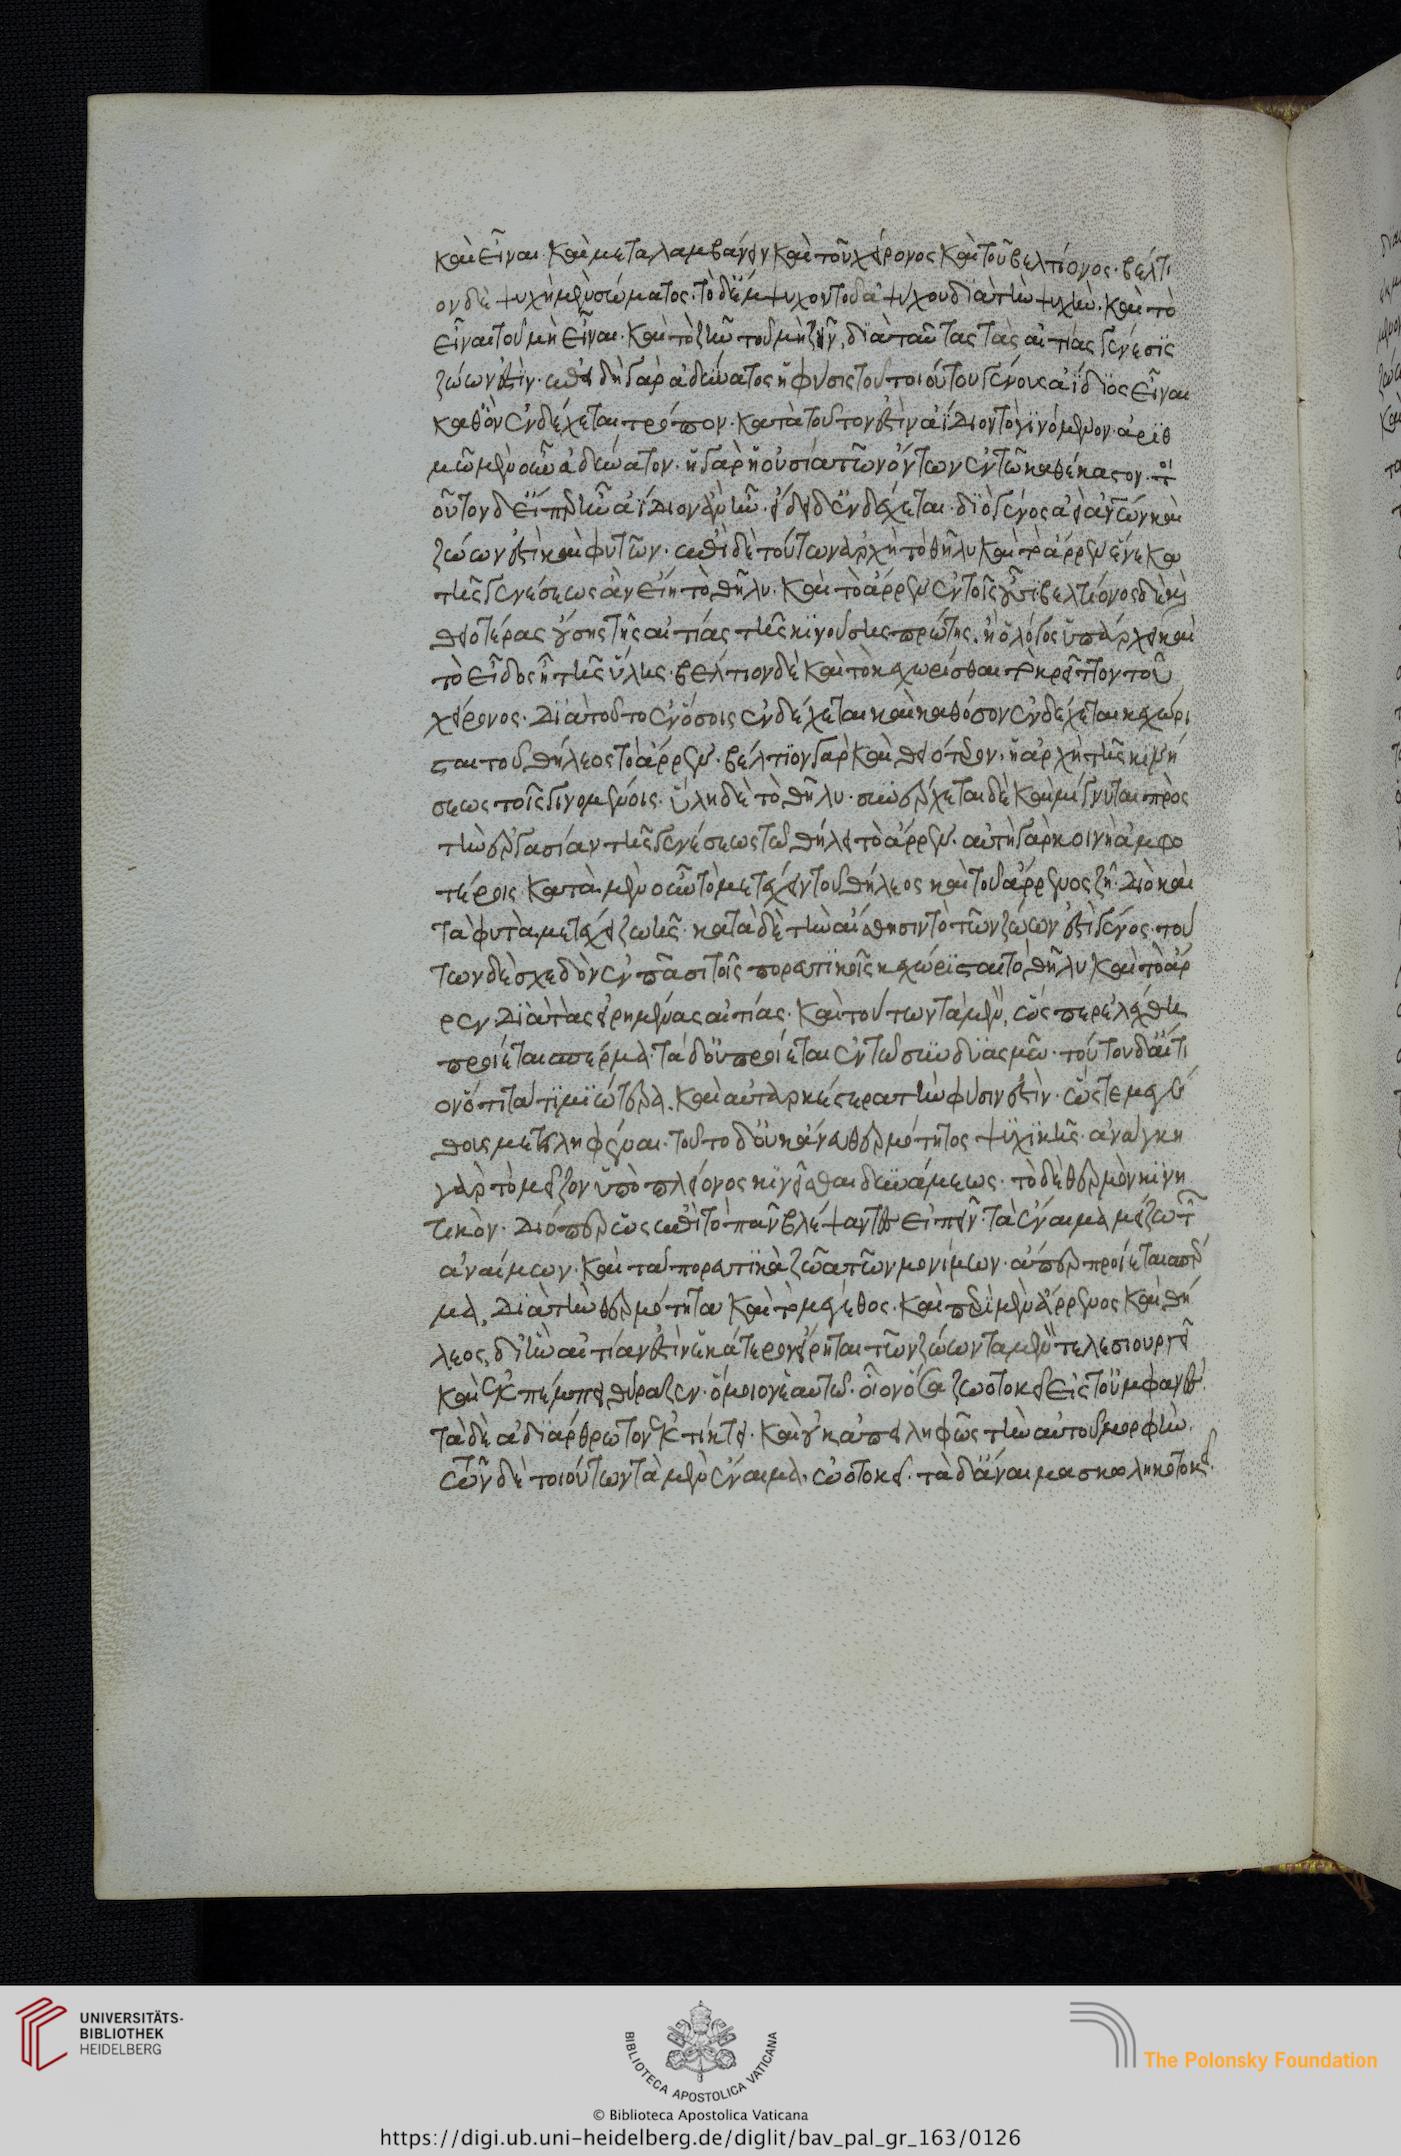 καὶ εἶναι καὶ μεταλαμβάνειν καὶ τοῦ χείρονος καὶ τοῦ βελτίονος· βέλτι
ον δὲ ψυχὴ μὲν σώματος· τὸ δ' ἔμψυχον τοῦ ἀψύχου διὰ τὴν ψυχὴν· καὶ τὸ
εἶναι τοῦ μὴ εἶναι· καὶ τὸ ζῆν τοῦ μὴ ζῆν, διὰ ταύτας τὰς αἰτίας γένεσις
ζώων ἐστὶν· ἐπεὶ δὴ γὰρ ἀδύνατος ἡ φύσις τοῦ τοιούτου γένους ἀΐδιος εἶναι
καθ' ὃν ἐνδέχεται τρόπον· κατὰ τοῦτον ἐστὶν ἀΐδιον τὸ γινόμενον· ἀριθ
μῶ μὲν οὖν ἀδύνατον· ἡ γὰρ ἡ οὐσία τῶν ὄντων ἐν τῶ καθέκαστον· τοι
οῦτον δ' εἴπερ ἦν ἀΐδιον ἂν ἦν· εἴδει δ' ἐνδέχεται· διὸ γένος ἀεὶ ἀνθρώπων καὶ
ζώων ἐστὶ καὶ φυτῶν· ἐπεὶ δὲ τούτων ἀρχὴ τὸ θῆλυ καὶ τὸ ἄρρεν ἕνεκα
τῆς γενέσεως ἂν εἴη τὸ θῆλυ· καὶ τὸ ἄρρεν ἐν τοῖς οὖσι βελτίονος δὲ καὶ
θειοτέρας οὔσης τῆς αἰτίας τῆς κινούσης πρώτης. ἢ ὁ λόγος ὑπάρχει καὶ
τὸ εἶδος ἢ τῆς ὕλης· βέλτιον δὲ καὶ τὸ κεχωρίσθαι τὸ κρεῖττον τοῦ
χείρονος· διὰ τοῦτο ἐν ὅσοις ἐνδέχεται καὶ καθόσον ἐνδέχεται κεχώρι
σται τοῦ θήλεος τὸ ἄρρεν· βέλτιον γὰρ καὶ θειότερον· ἡ ἀρχὴ τῆς κινή
σεως τοῖς γινομένοις· ὕλη δὲ τὸ θῆλυ· συνέρχεται δὲ καὶ μίγνυται πρὸς
τὴν ἐργασίαν τῆς γενέσεως τῶ θήλει τὸ ἄρρεν· αὐτὴ γὰρ κοινὴ ἀμφο
τέροις κατὰ μὲν οὖν τὸ μετέχειν τοῦ θήλεος καὶ τοῦ ἄρρενος ζῆ· διὸ καὶ
τὰ φυτὰ μετέχει ζωῆς· κατὰ δὲ τὴν αἴσθησιν τὸ τῶν ζώων ἐστὶ γένος· τού
των δὲ σχεδὸν ἐν πᾶσι τοῖς πορευτικοῖς κεχώρισται τὸ θῆλυ καὶ τὸ ἄρ
ρεν διὰ τὰς εἰρημένας αἰτίας· καὶ τούτων τὰ μὲν, ὥσπερ ἐλέχθη
προίεται σπέρμα· τὰ δ' οὐ προίεται ἐν τῶ συνδυασμῶ· τούτου δ' αἴτι
ον ὅτι τὰ τιμιώτερα καὶ αὐταρκέστερα τὴν φύσιν ἐστὶν· ὥστε μεγέ
θους μετειληφέναι· τοῦτο δ' οὐκ ἄνευ θερμότητος ψυχικῆς· ἀνάγκη
γὰρ τὸ μεῖζον ὑπὸ πλείονος κινεῖσθαι δυνάμεως· τὸ δὲ θερμὸν κινη
τικὸν· διόπερ ὡς ἐπὶ τὸ πᾶν βλέψαντας εἰπεῖν· τὰ ἔναιμα μείζω τῶν
ἀναίμων· καὶ τὰ πορευτικὰ ζῶα τῶν μονίμων· ἅπερ προίεται σπέρ
μα, διὰ τὴν θερμότητα καὶ τὸ μέγεθος· καὶ περὶ μὲν ἄρρενος καὶ θή
λεος, δι' ἣν αἰτίαν ἐστὶν ἑκάτερον εἴρηται τῶν ζώων τὰ μὲν τελεσιουργεῖ
καὶ ἐκπέμπει θύραζεν· ὅμοιον ἑαυτῶ· οἷον ὅσα ζωοτοκεῖ εἰς τοὐμφανές.
τὰ δὲ ἀδιάρθρωτον ἐκτίκτει· καὶ οὐκ ἀπειληφὼς τὴν αὐτοῦ μορφήν.
τῶν δὲ τοιούτων τὰ μὲν ἔναιμα, ὠοτοκεῖ· τὰ δ' ἄναιμα σκωληκοτοκεῖ.
UNIVERSITÄTS-
BIBLIOTHEK
HEIDELBERG
BIBLIOTECA APOSTOLICA VATICANA
The Polonsky Foundation
© Biblioteca Apostolica Vaticana
https://digi.ub.uni-heidelberg.de/diglit/bav_pal_gr_163/0126